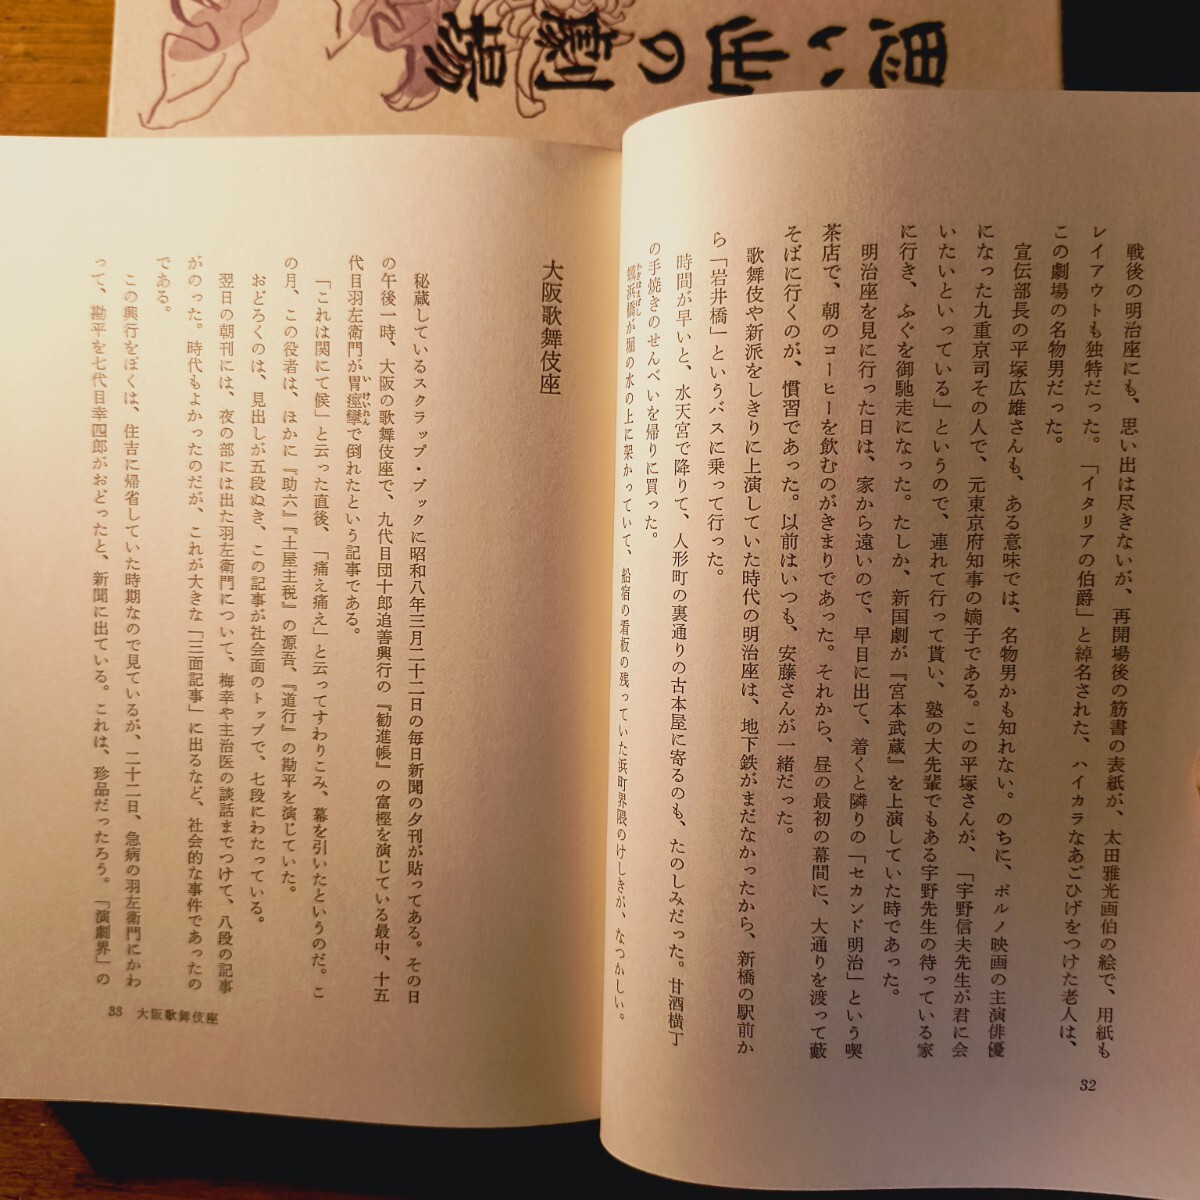 思い出の劇場
戦後の明治座にも、思い出は尽きないが、再開場後の筋書の表紙が、太田雅光画伯の絵で、用紙も
レイアウトも独特だった。「イタリアの伯爵」と綽名された、ハイカラなあごひげをつけた老人は、
この劇場の名物男だった。
宣伝部長の平塚広雄さんも、ある意味では、名物男かも知れない。のちに、ポルノ映画の主演俳優
になった九重京司その人で、元東京府知事の嫡子である。この平塚さんが、「宇野信夫先生が君に会
いたいといっている」というので、連れて行って貰い、塾の大先輩でもある宇野先生の待っている家
に行き、ふぐを御馳走になった。たしか、新国劇が『宮本武蔵』を上演していた時であった。
明治座を見に行った日は、家から遠いので、早目に出て、着くと隣りの「セカンド明治」という喫
茶店で、朝のコーヒーを飲むのがきまりであった。それから、昼の最初の幕間に、大通りを渡って藪
そばに行くのが、慣習であった。以前はいつも、安藤さんが一緒だった。
歌舞伎や新派をしきりに上演していた時代の明治座は、地下鉄がまだなかったから、新橋の駅前か
ら「岩井橋」というバスに乗って行った。
時間が早いと、水天宮で降りて、人形町の裏通りの古本屋に寄るのも、たのしみだった。甘酒横丁
の手焼きのせんべいを帰りに買った。
蠣浜橋が堀の水の上に架かっていて、船宿の看板の残っていた浜町界隈のけしきが、なつかしい。
かきはまばし
32
大阪歌舞伎座
秘蔵しているスクラップ・ブックに昭和八年三月二十二日の毎日新聞の夕刊が貼ってある。その日
の午後一時、大阪の歌舞伎座で、九代目団十郎追善興行の『勧進帳』の富樫を演じている最中、十五
代目羽左衛門が胃痙攣で倒れたという記事である。
いけいれん
「これは関にて候」と云った直後、「痛え痛え」と云ってすわりこみ、幕を引いたというのだ。こ
の月、この役者は、ほかに『助六』『土屋主税』の源吾、『道行』の勘平を演じていた。
おどろくのは、見出しが五段ぬき、この記事が社会面のトップで、七段にわたっている。
翌日の朝刊には、夜の部には出た羽左衛門について、梅幸や主治医の談話までつけて、八段の記事
がのった。時代もよかったのだが、これが大きな「三面記事」に出るなど、社会的な事件であったの
である。
この興行をぼくは、住吉に帰省していた時期なので見ているが、二十二日、急病の羽左衛門にかわ
って、勘平を七代目幸四郎がおどったと、新聞に出ている。これは、珍品だったろう。「演劇界」の
33 大阪歌舞伎座